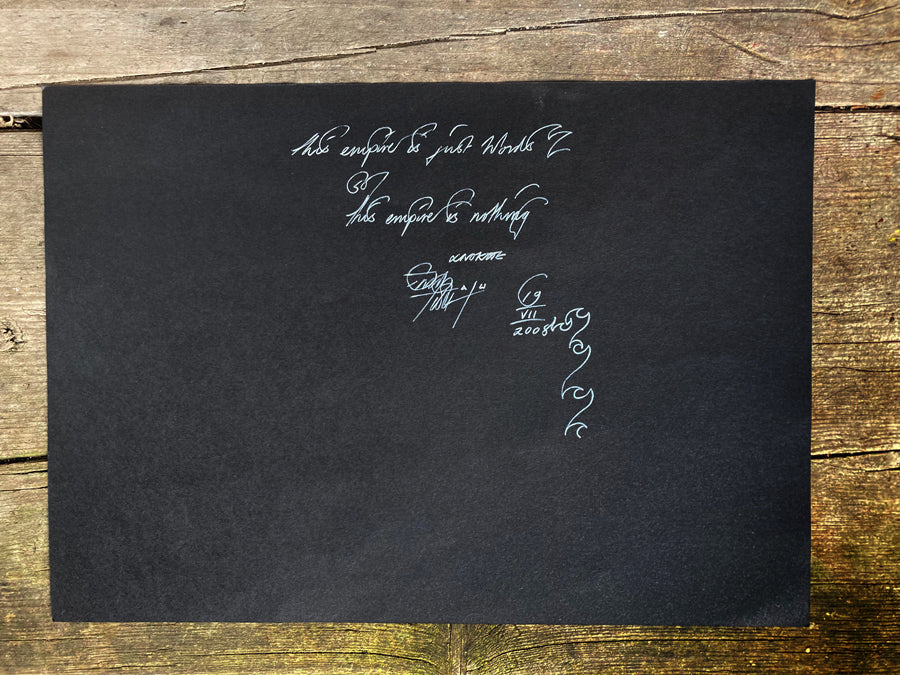 this empire is just words
this empire is nothing
19
VII
2008